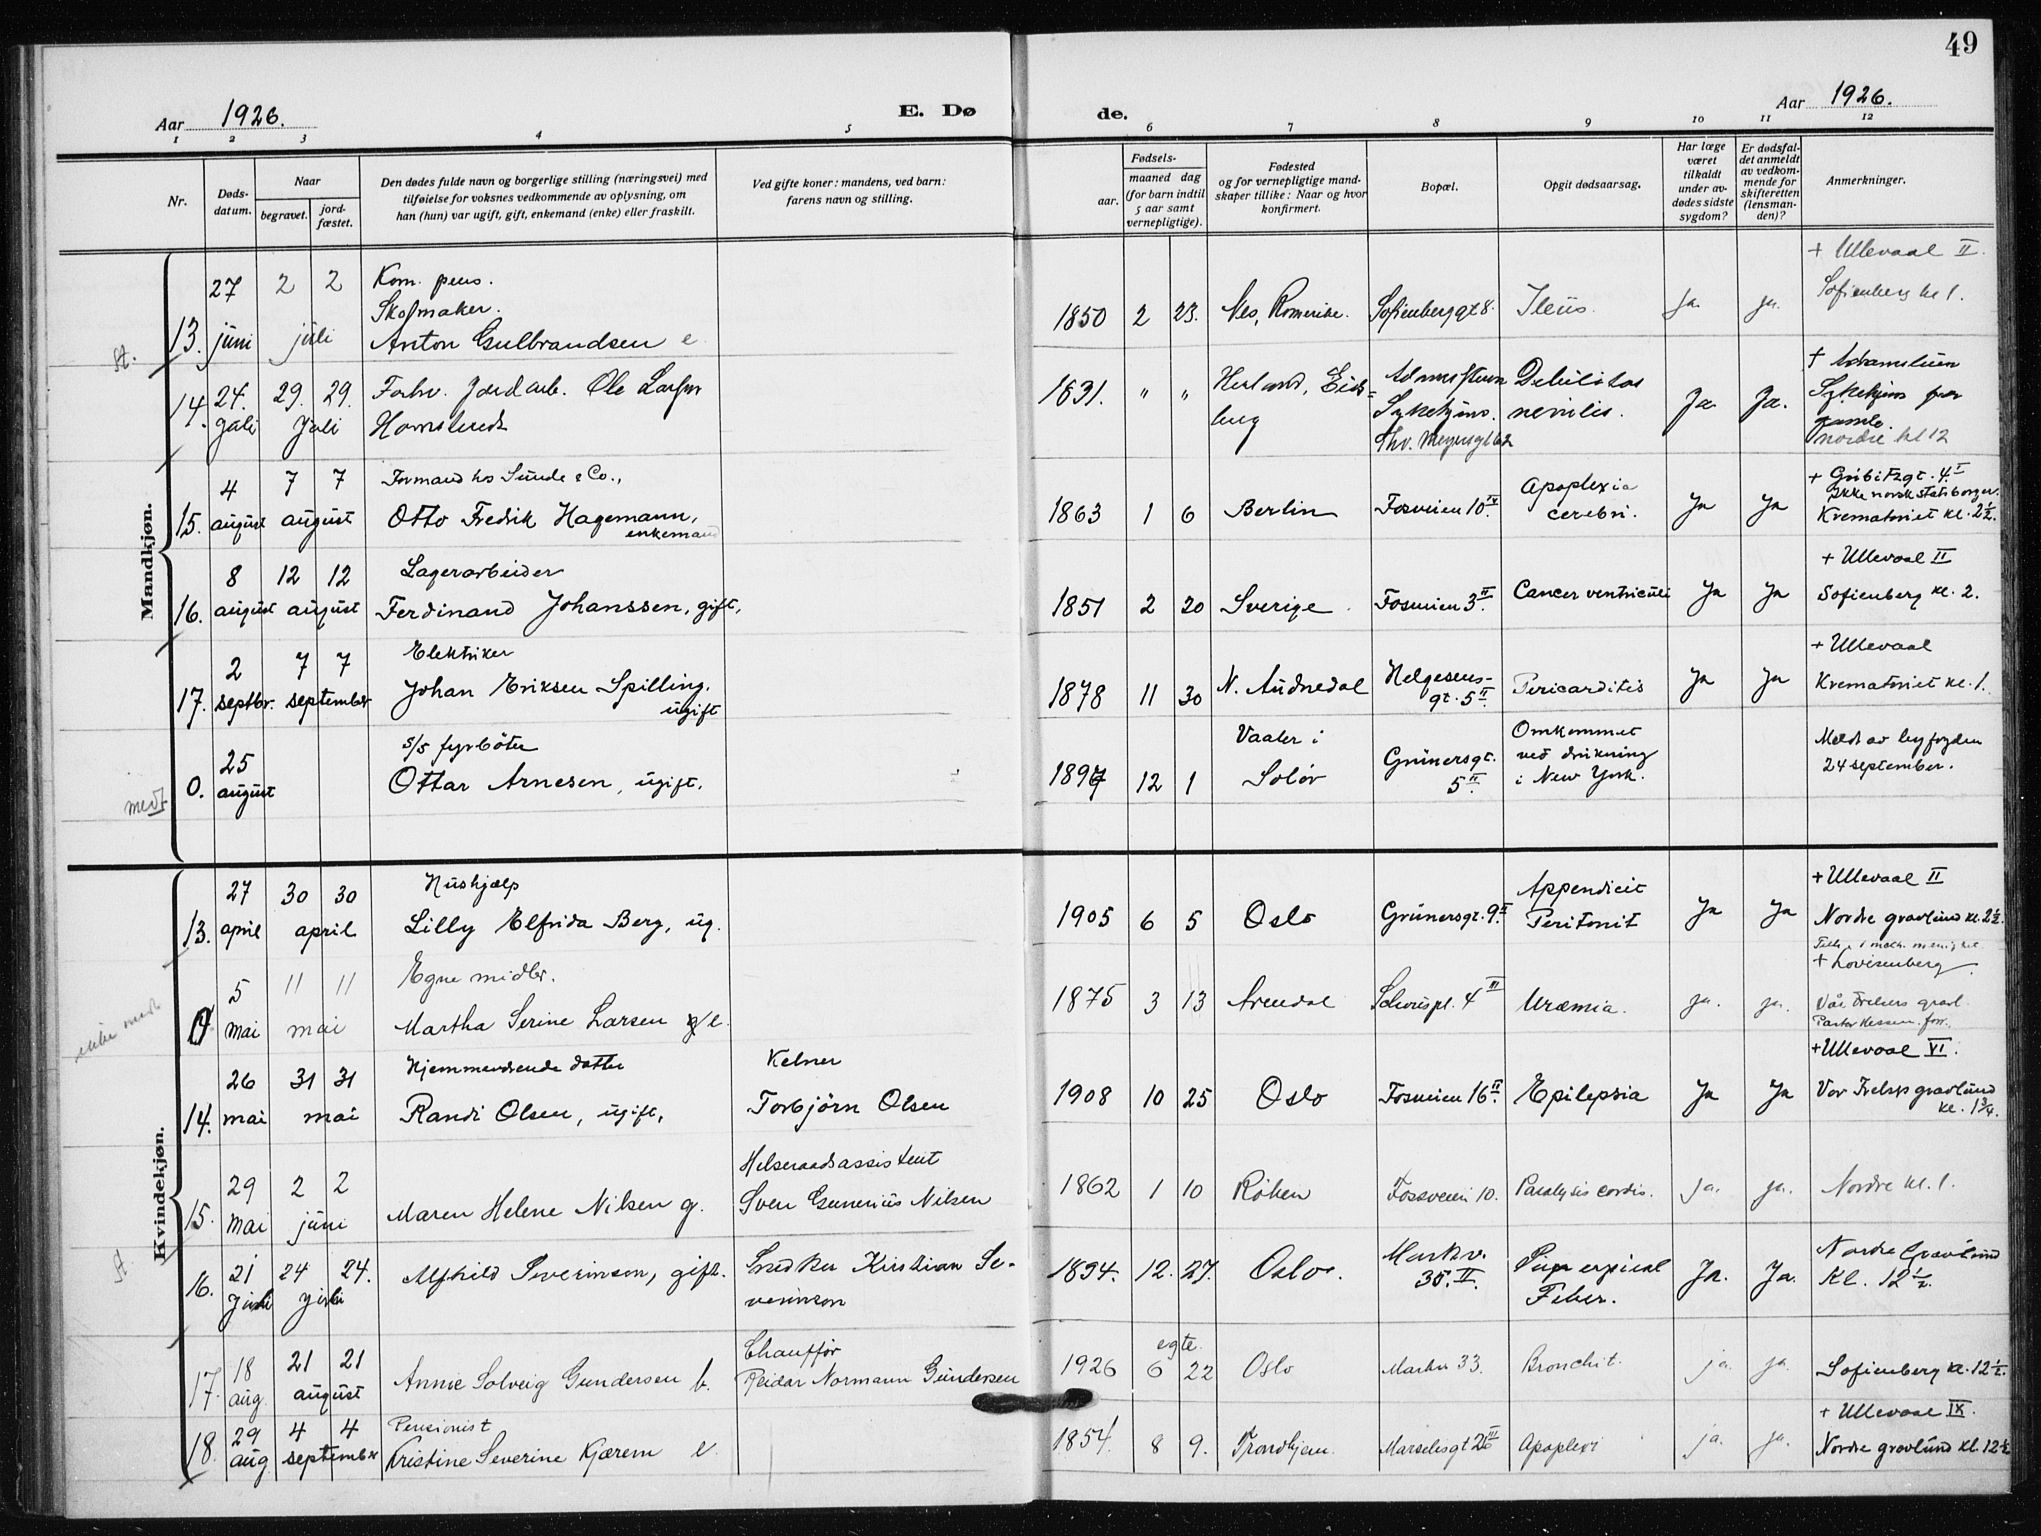 49
Aar 1926.
E. Dø
de.
Aar 1926.
1 2 3 4 5 6 7 8 9 10 11 12
Nr.
Døds-
datum.
Naar
begravet.
jord-
fæstet.
Den dødes fulde navn og borgerlige stilling (næringsvei) med
tilføielse for voksnes vedkommende av oplysning, om
han (hun) var ugift, gift, enkemand (enke) eller fraskilt.
Ved gifte koner: mandens, ved barn:
farens navn og stilling.
Fødsels-
aar.
maaned dag
(for barn indtil
5 aar samt
vernepligtige).
Fødested
og for vernepligtige mand-
skaper tillike: Naar og hvor
konfirmert.
Bopæl.
Opgit dødsaarsag.
Har læge
været
tilkaldt
under av-
dødes sidste
sygdom?
Er dødsfal-
det anmeldt
av vedkom-
mende for
skifteretten
(lensman-
den)?
Anmerkninger.
Mandkjøn.
+ Ullevaal II.
27 2 2 Kom. pens.
Skofmaker.
Sofienberg kl 1.
st. 13. juni juli Anton Gulbrandsen e 1850 2 23. Nes, Romerike. Sofienberggt 8. Ileus. Ja ja.
24. 29. 29. Forhv. Jordarb. Ole Larsen
14. Juli Juli
1831. " " Herland, Eids-
berg
Sykehjem.
Thv. Meyersgt 62
Debilitas
senilis.
Ja. Ja.
Sykehjem for
gamle.
Nordre kl 12
4 7 7 Formand hos Sunde & Co.,
15. august august Otto Fredrik Hagemann,
enkemand
1863 1 6 Berlin Fosveien 10 IV. Apoplexia
cerebri.
Ja Ja
Ikke norsk statsborger.
Krematoriet kl. 2½.
8 12 12 Lagerarbeider
16. august august Ferdinand Johanssen, gift,
1851 2 20 Sverige Fosveien 3 II. Cancer ventriculi Ja Ja
+ Ullevaal II
Sofienberg kl. 2.
2 7 7 Elektriker
17. septbr. september Johan Eriksen Spilling.
ugift
1878 11 30 N. Audnedal Helgesens-
gt. 5 II. Pericarditis Ja Ja
+ Ullevaal
Krematoriet kl. 1.
25 s/s fyrbøter
medt 0. august Ottar Arnesen, ugift.
1897 12 1 Vaaler i
Solør
Grünersgt.
5 II.
Omkommet
ved drukning
i New York.
24 september.
Kvindekjøn.
27 30 30 Hushjælp
13. april april Lilly Elfrida Berg, ug.
1905 6 5 Oslo Grünersgt. 9 II Appendicit
Peritonit
Ja Ja
+ Ullevaal II
Nordre gravlund kl. 2½.
+ Lovisenberg
5 11 11 Egne midler.
ikke medt mai mai Martha Serine Larsen e.
1875 3 13 Arendal Schouspl. 4 III Uræmia. ja. ja.
Vår Frelsers gravl.
Pastor Hessen forr.
26 31 31 Hjemmeværende datter Kelner
14. mai mai Randi Olsen, ugift, Torbjörn Olsen
1908 10 25 Oslo Fosveien 16 II. Epilepsia Ja Ja
+ Ullevaal VI.
Vor Frelsers gravlund
kl. 1¾.
29 2 2 Helseraadsassistent
15. mai juni Maren Helene Nilsen g. Sven Gunerius Nilsen
1862 1 10 Røken Fossveien 10. Paralysis cordis. ja. ja. Nordre kl. 1.
st 16. 21 24 24. Alfhild Severinson, gift. Snedker Kristian Se-
verinson
1894. 12. 27. Oslo. Markv.
35. II. Puerperical
Feber.
Ja. Ja.
Nordre Gravlund
Kl. 12½.
18 21 21 Chauffør
17. aug. august Annie Solveig Gundersen b. Reidar Normann Gundersen
egte.
1926 6 22 Oslo Markv 33. Bronchit. ja. ja. Sofienberg kl. 12½.
29 4 4 Pensionist
18. aug september Kristine Severine Kjærem e.
1854. 8 9. Trondhjem. Marselisgt Apoplexi ja. ja.
+ Ullevaal IX.
Nordre gravlund kl. 12½